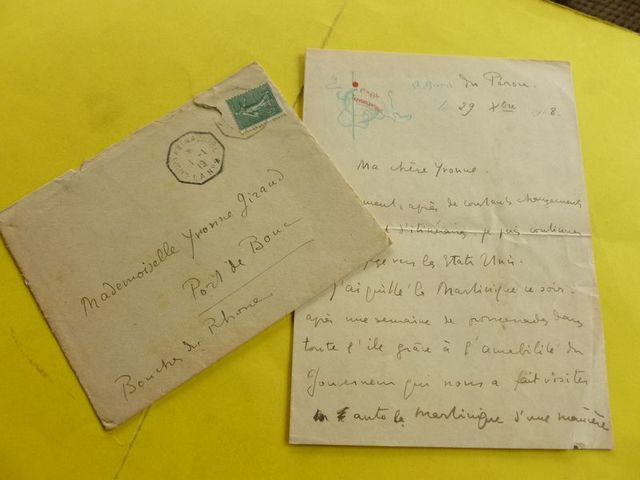 Mademoiselle Yvonne Giraud
Port de Bouc
Bouches du Rhone
A Bord du Pérou.
Le 29 Xbre 1918.
Ma chère Yvonne.
après de constants changements
d'itinéraires je puis continuer
vers les Etats Unis.
J'ai quitté la Martinique ce soir.
après une semaine de promenades dans
toute l'ile grâce à l'amabilité du
Gouverneur qui nous a fait visiter
en auto la Martinique d'une manière